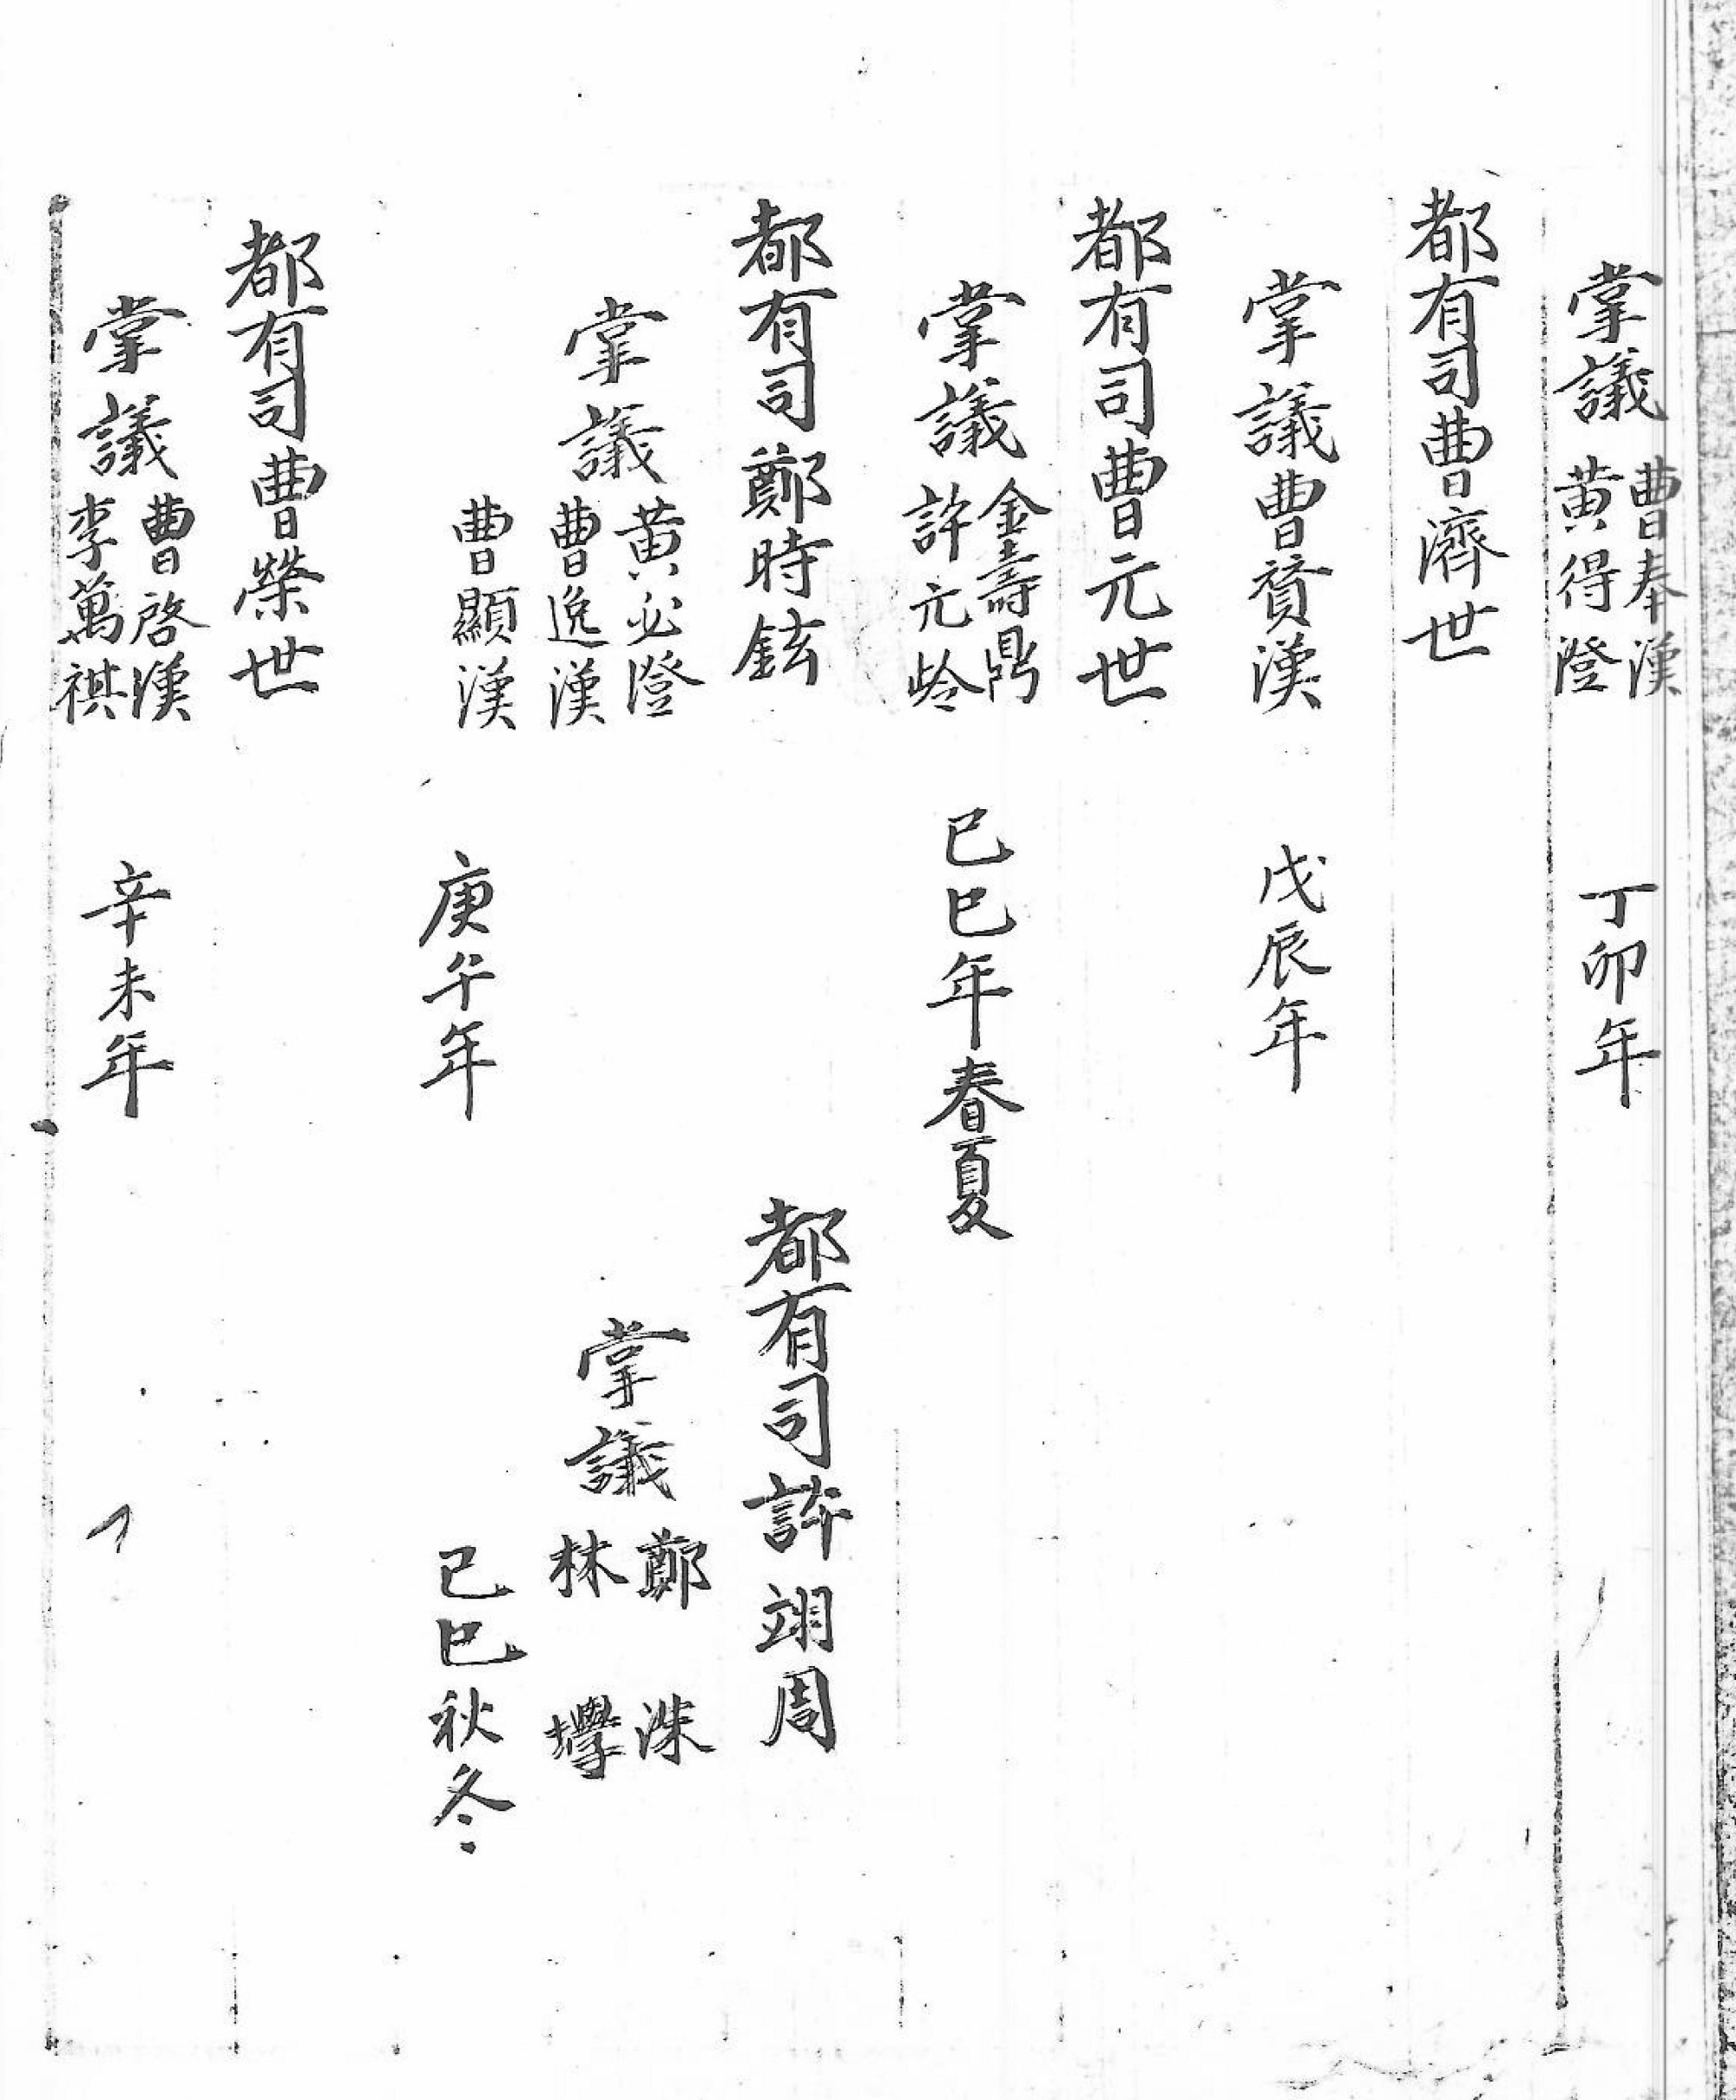 掌議 曹奉漢
黃得澄
丁卯年
都有司曹濟世
掌議曹贇漢 戊辰年
都有司曹元世
掌議 金壽鼎
許元岭
己巳年春夏
都有司鄭時鉉
掌議 黃必澄
曹逸漢
曹顯漢
庚午年
都有司許翊周
掌議 鄭洙
林壆
己巳秋冬
都有司曹榮世
掌議 曹啓漢
李萬祺
辛未年